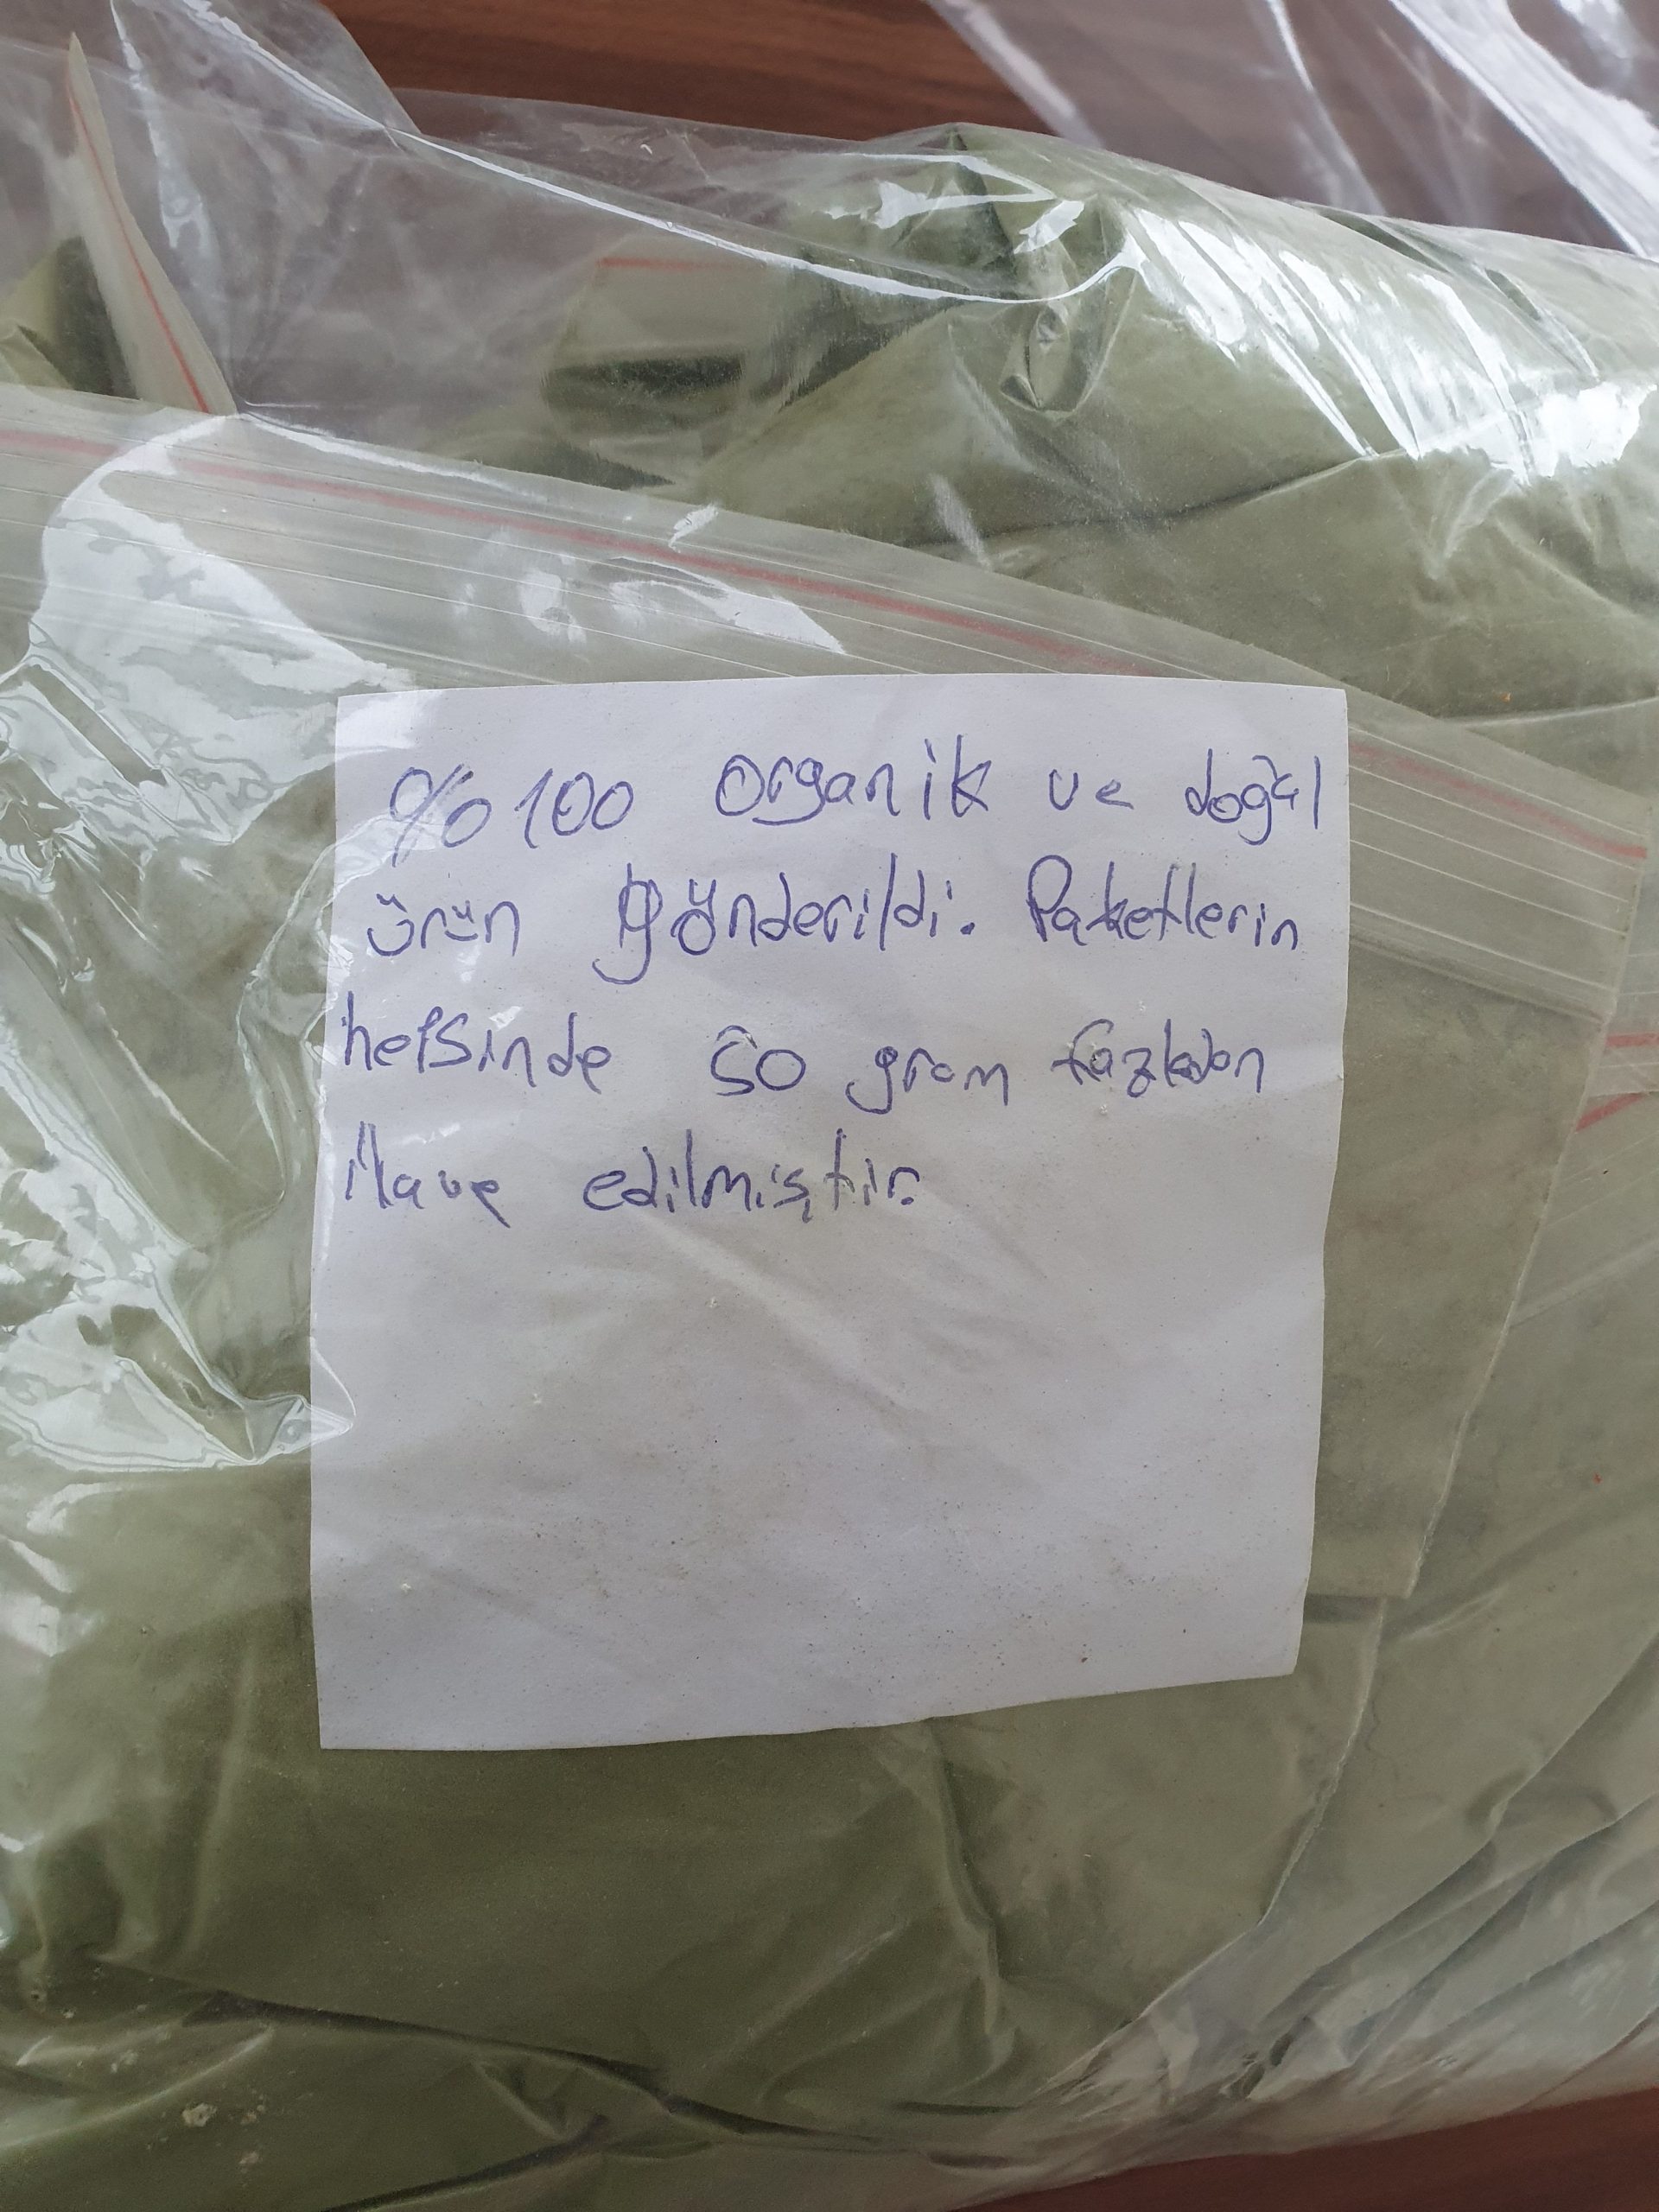 %100 organik ve doğal
ürün gönderildi. Paketlerin
hepsinde 50 gram fazladan
ilave edilmiştir.